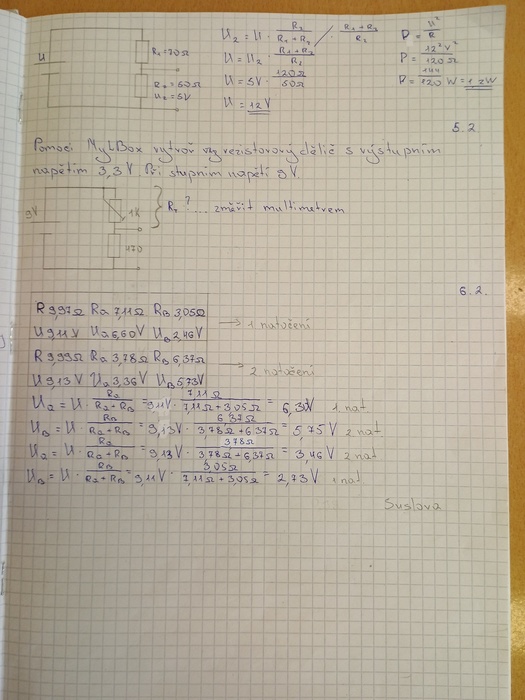 U
R₁=70Ω
R₂=50Ω
U₂=5V
U₂ = U · R₂/(R₁+R₂) / · (R₁+R₂)/R₂
U = U₂ · (R₁+R₂)/R₂
U = 5V · 120Ω/50Ω
U = 12V
P = U²/R
P = 12²V²/120Ω
P = 144/120 W = 1,2W
5.2.
Pomocí MyLBox vytvoř rezistorový dělič s výstupním
napětím 3,3 V. Při stupním napětí 9V.
9V
1K
470
R₁ ?... změřit multimetrem
6.2.
R 9,97Ω Ra 7,11Ω RB 3,05Ω
U 9,11V Ua 6,60V UB 2,46V
→ 1 natočení
R 9,99Ω Ra 3,78Ω RB 6,37Ω
U 9,13V Ua 3,36V UB 5,73V
→ 2 natočení
Ua = U · Ra/(Ra+RB) = 9,11V · 7,11Ω/(7,11Ω+3,05Ω) = 6,3V 1 nat
UB = U · RB/(Ra+RB) = 9,13V · 6,37Ω/(3,78Ω+6,37Ω) = 5,75V 2 nat
Ua = U · Ra/(Ra+RB) = 9,13V · 3,78Ω/(3,78Ω+6,37Ω) = 3,46V 2 nat
UB = U · RB/(Ra+RB) = 9,11V · 3,05Ω/(7,11Ω+3,05Ω) = 2,73V 1 nat
Suslova